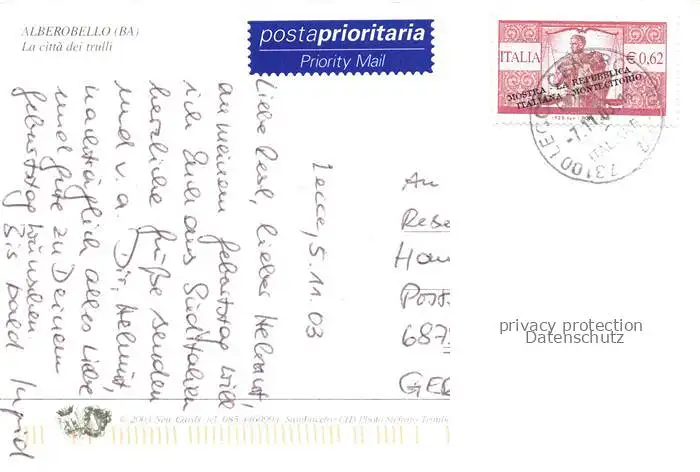 ALBEROBELLO (BA)
La città dei trulli
postaprioritaria
Priority Mail
ITALIA
€ 0,62
MOSTRA - LA REPUBBLICA
ITALIANA - MONTECITORIO
73100 LECCE
-7.11.03
Lecce, 5.11.03
lieber Helmut,
an meinem Geburtstag will
ich Euch aus Süditalien
herzliche Grüße senden
und v.a. Dir, Helmut
nachträglich alles Liebe
und Gute zu Deinem
Geburtstag wünschen.
Bis bald Ingrid
An
Rese
Hau
Post
687
GER
privacy protection
Datenschutz
© 2003